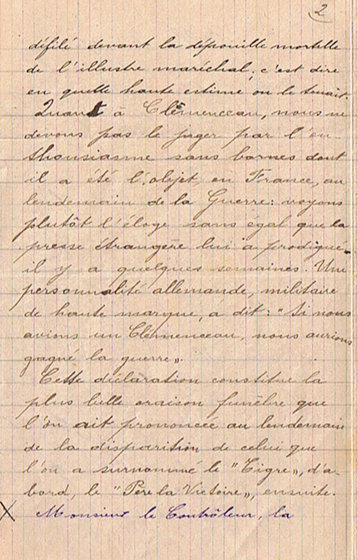 2
défilé devant la dépouille mortelle
de l'illustre maréchal, c'est dire
en quelle haute estime on le tenait.
Quant à Clémenceau, nous ne
devons pas le juger par l'en-
thousiasme sans bornes dont
il a été l'objet, en France, au
lendemain de la Guerre: voyons
plutôt l'éloge sans égal que la
presse étrangère lui a prodigué
il y a quelques semaines. Une
personnalité allemande, militaire
de haute marque, a dit: "Si nous
avions un Clémenceau, nous aurions
gagné la guerre".
Cette déclaration constitue la
plus belle oraison funèbre que
l'on ait prononcée au lendemain
de la disparition de celui que
l'on a surnommé le "Tigre", d'a-
bord, le "Père la Victoire", ensuite.
X Monsieur le Contrôleur, la